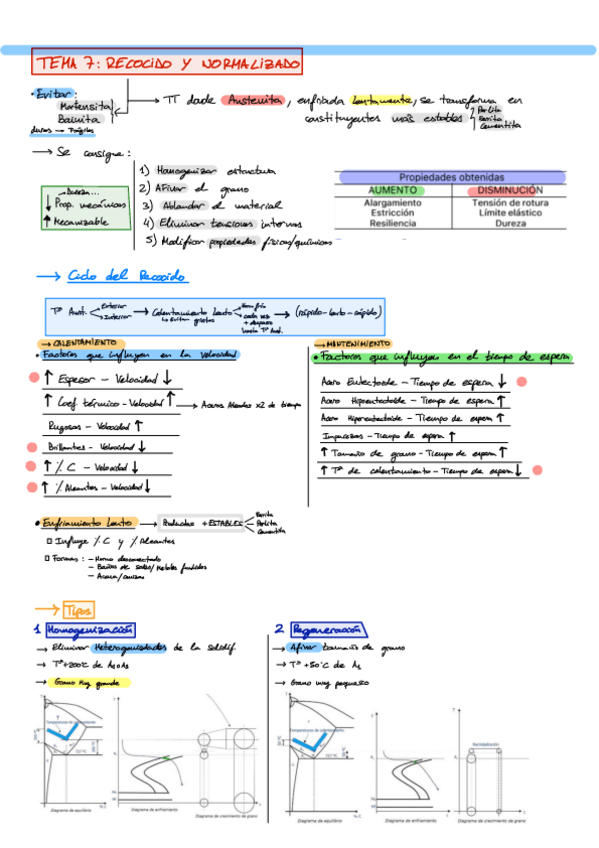 TEMA 7: RECOCIDO Y NORMALIZADO
• Evitar:
Martensita
Bainita
duras → Frágiles
→ TT donde Austenita, enfriada lentamente, se transforma en
constituyentes más estables
Perlita
Ferrita
Cementita
→ Se consigue:
→ Dureza...
↓ Prop. mecánicas
↑ Mecanizable
1) Homogenizar estructura
2) Afinar el grano
3) Ablandar el material
4) Eliminar tensiones internas
5) Modificar propiedades físicas/químicas
Propiedades obtenidas
AUMENTO DISMINUCIÓN
Alargamiento Tensión de rotura
Estricción Límite elástico
Resiliencia Dureza
→ Ciclo del Recocido
Tª Aust. Exterior Interior → Calentamiento Lento → (rápido-lento-rápido)
↳ Evitar grietas
→ CALENTAMIENTO
• Factores que influyen en la velocidad
↑ Espesor - Velocidad ↓
↑ Coef. térmico - Velocidad ↑ → Aceros Aleados x2 de tiempo
Rugosas - Velocidad ↑
Brillantes - Velocidad ↓
↑ % C - Velocidad ↓
↑ % Aleantes - Velocidad ↓
→ MANTENIMIENTO
• Factores que influyen en el tiempo de espera
Acero Eutectoide - Tiempo de espera ↓
Acero Hipoeutectoide - Tiempo de espera ↑
Acero Hipereutectoide - Tiempo de espera ↑
Impurezas - Tiempo de espera ↑
↑ Tamaño de grano - Tiempo de espera ↑
↑ Tª de calentamiento - Tiempo de espera ↓
• Enfriamiento Lento → Productos + ESTABLES
Ferrita
Perlita
Cementita
□ Influye % C y % Aleantes
□ Formas: - Horno desconectado
- Baños de sales/Metales fundidos
- Arena/cenizas
→ Tipos
1 Homogenización
→ Eliminar Heterogeneidades de la solidif.
→ Tª+200ºC de A₃ o A₁
→ Grano muy grande
2 Regeneración
→ Afinar tamaño de grano
→ Tª +50ºC de A₃
→ Grano muy pequeño
Diagrama de equilibrio
Diagrama de enfriamiento
Diagrama de crecimiento de grano
Recristalización
Diagrama de equilibrio
Diagrama de enfriamiento
Diagrama de crecimiento de grano